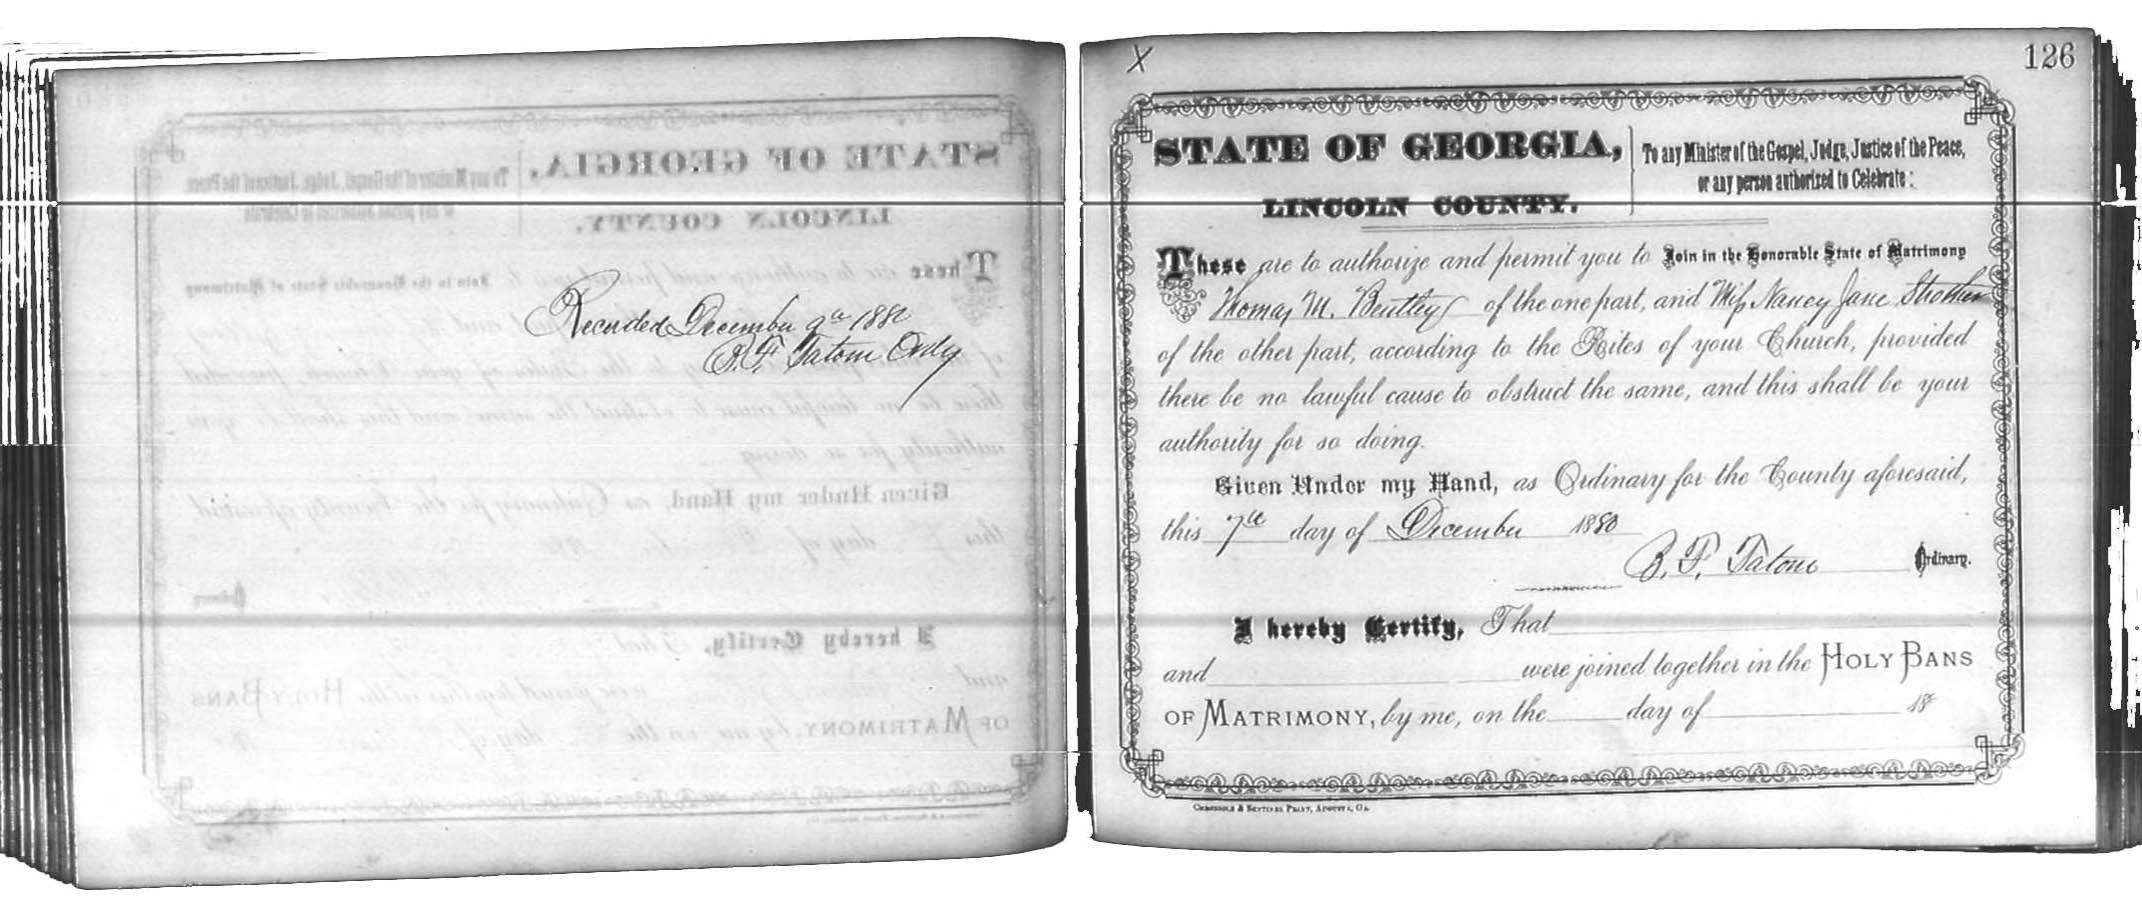 Recorded December 9th 1880
B. F. Tatom Ordy
X
126
STATE OF GEORGIA,
LINCOLN COUNTY.
To any Minister of the Gospel, Judge, Justice of the Peace,
or any person authorized to Celebrate:
These are to authorize and permit you to Join in the Honorable State of Matrimony
Thomas M. Bentley of the one part, and Miss Nancy Jane Strother
of the other part, according to the Rites of your Church, provided
there be no lawful cause to obstruct the same, and this shall be your
authority for so doing.
Given Under my Hand, as Ordinary for the County aforesaid,
this 7th day of December 1880
B. F. Tatom Ordinary.
I hereby Certify, That
and were joined together in the HOLY BANS
OF MATRIMONY, by me, on the day of 18
CHRONICLE & SENTINEL PRINT, AUGUSTA, GA.